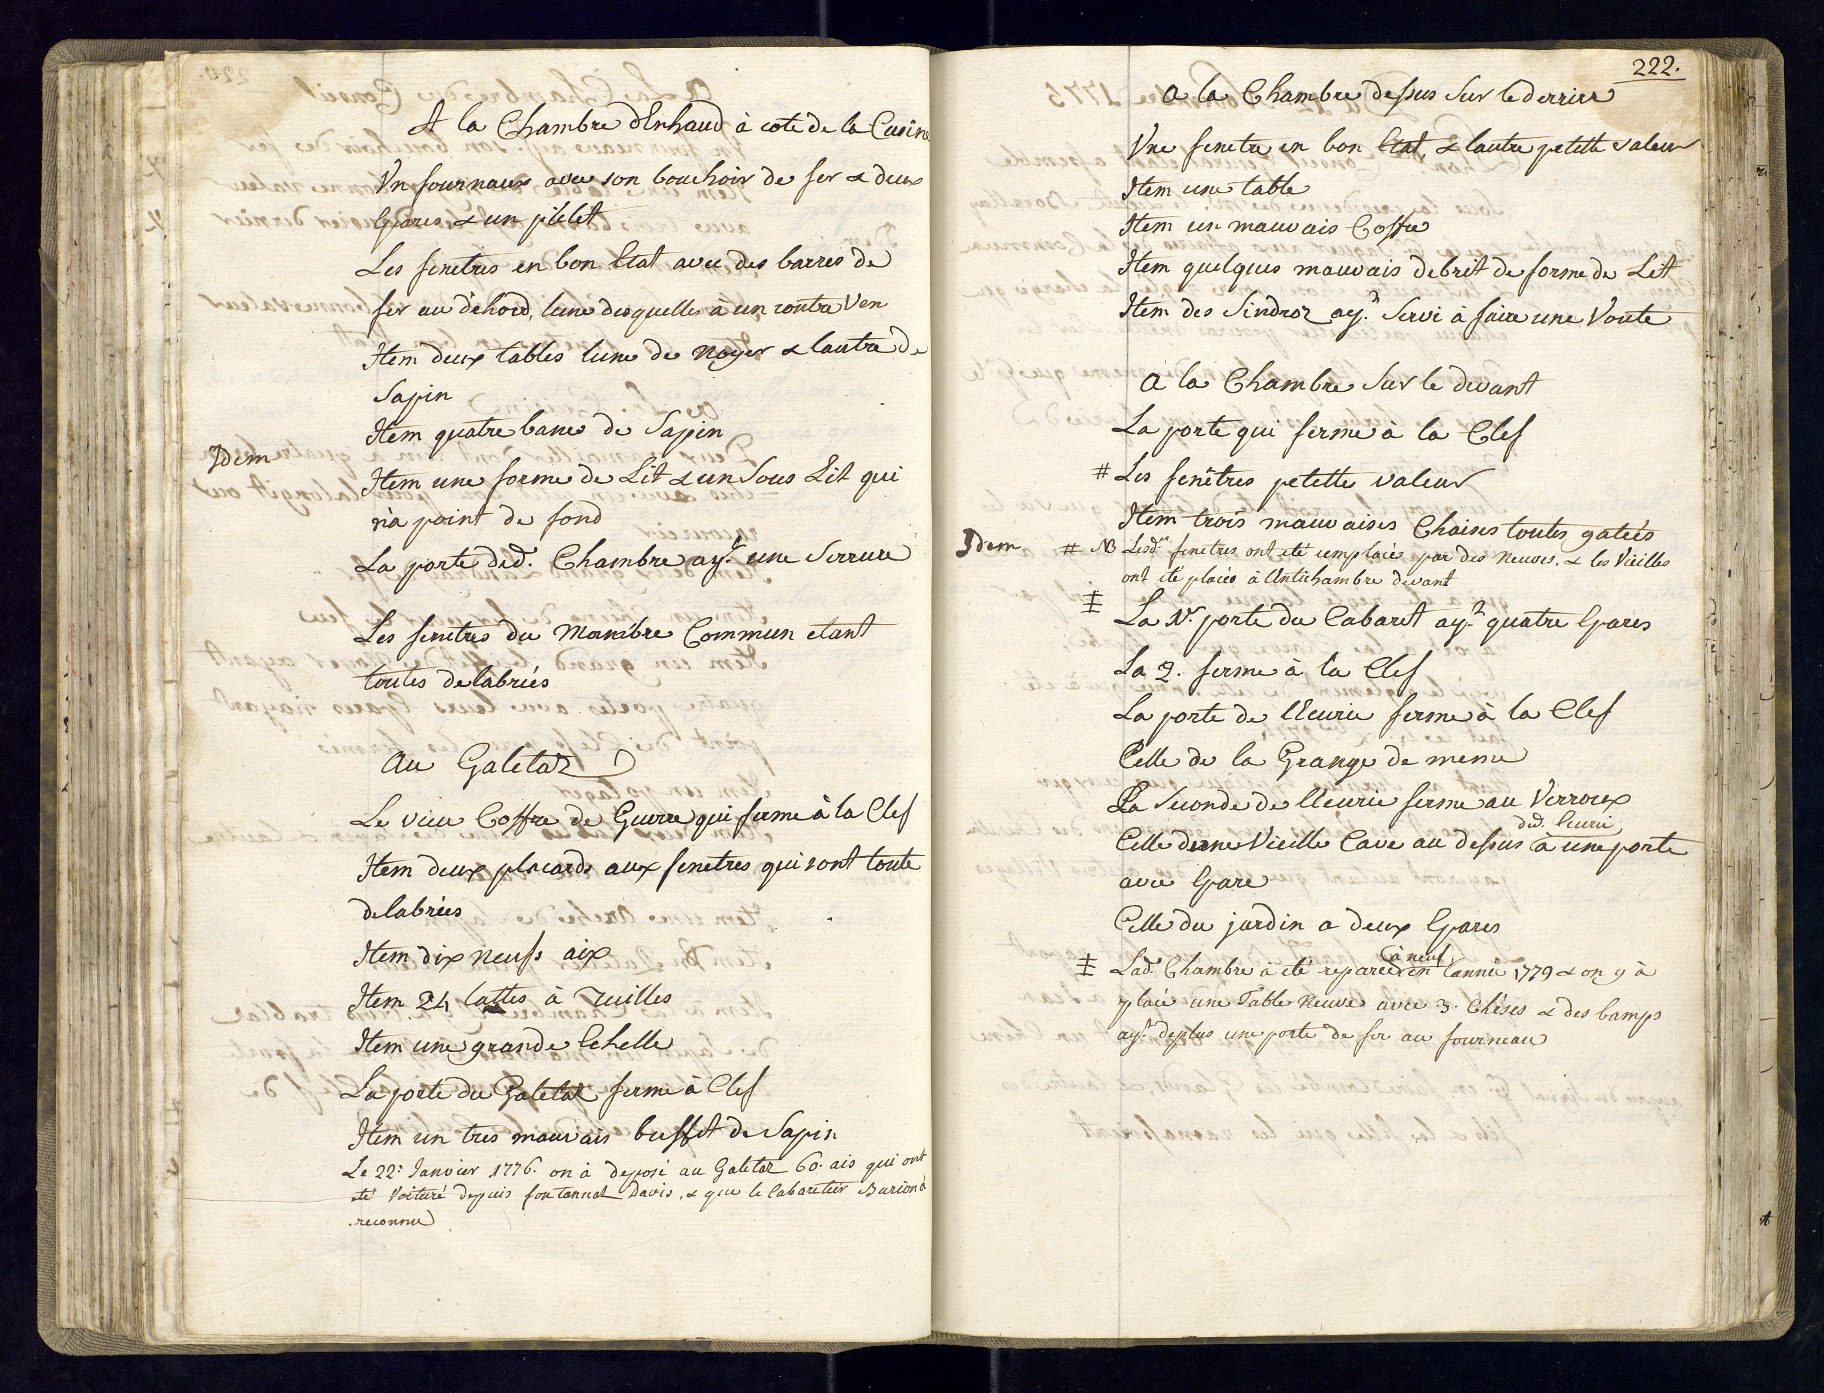 A la Chambre d'Enhaud à cote de la Cusine
Un fournaux avec son bouchoir de fer & deux
Epares & un pilelet
Les fenetres en bon Etat avec des barres de
fer au déhord, lune desquelles à un contreven
Item deux tables lune de Noyer & lautre de
Sapin
Item quatre bancs de Sapin
Idem
Item une forme de Lit & un Sous Lit qui
n'a point de fond
La porte de d.e Chambre ay.t une Serrure
Les fenetres du Membre Commun etant
toutes delabriés
Au Galetaz
Le vieu Coffre de Guerre qui ferme à la Clef
Item deux placards aux fenetres qui sont toute
delabriés
Item dix neufs aix
Item 24 lattes à Tuilles
Item une grande Echelle
La porte du Galetaz ferme à Clef
Item un tres mauvais buffet de Sapin
Le 22: Janvier 1776. on à deposé au Galetaz 60. ais qui ont
eté Voituré depuis fontannaz Davis, & que le Cabaretier Burion à
reconnu
222.
A la Chambre dessus Sur le derrire
Une fenetre en bon Etat, & lautre petitte valeur
Item une table
Item un mauvais Coffre
Item quelques mauvais debrit de forme de Lit
Item des Sindroz ay.t Servi à faire une Voute
A la Chambre Sur le devant
La porte qui ferme à la Clef
# Les fenêtres petitte valeur
Item trois mauvaises Chaises toutes gateés
Idem # NB Lesd.es fenetres ont eté remplacés par des neuves, & les Vieilles
ont eté placés à lAntichambre devant
‡ La 1.re porte du Cabaret ay.t quatre Epares
La 2. ferme à la Clef
La porte de lEcurie ferme à la Clef
Celle de la Grange de meme
La Seconde de lEcurie ferme au Verroux
ded. Ecurie,
Celle d'une Vieille Cave au dessus à une porte
avec Epare
Celle du jardin a deux Epares
à neuf
‡ Lad.e Chambre à eté reparée en lannée 1779 & on y à
placé une Table neuve avec 3. Chéses & des bamps
ay.t deplus une porte de fer au fourneau